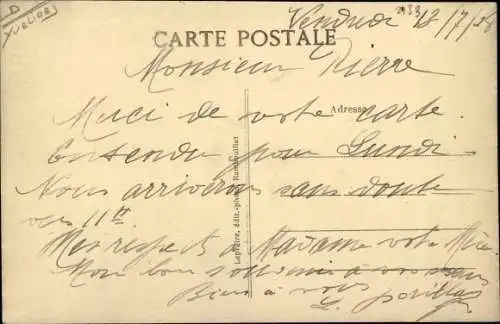 D
Yvelines
Vendredi 13/7/
CARTE POSTALE
Monsieur Pierre
Adresse
Merci de votre carte.
Entendu pour Lundi
Nous arriverons sans doute
vers 11h
Mes respects à Madame votre Mère
Mon bon souvenir à vous
Bien à vous
Lepintre, édit.-phot. Rambouillet